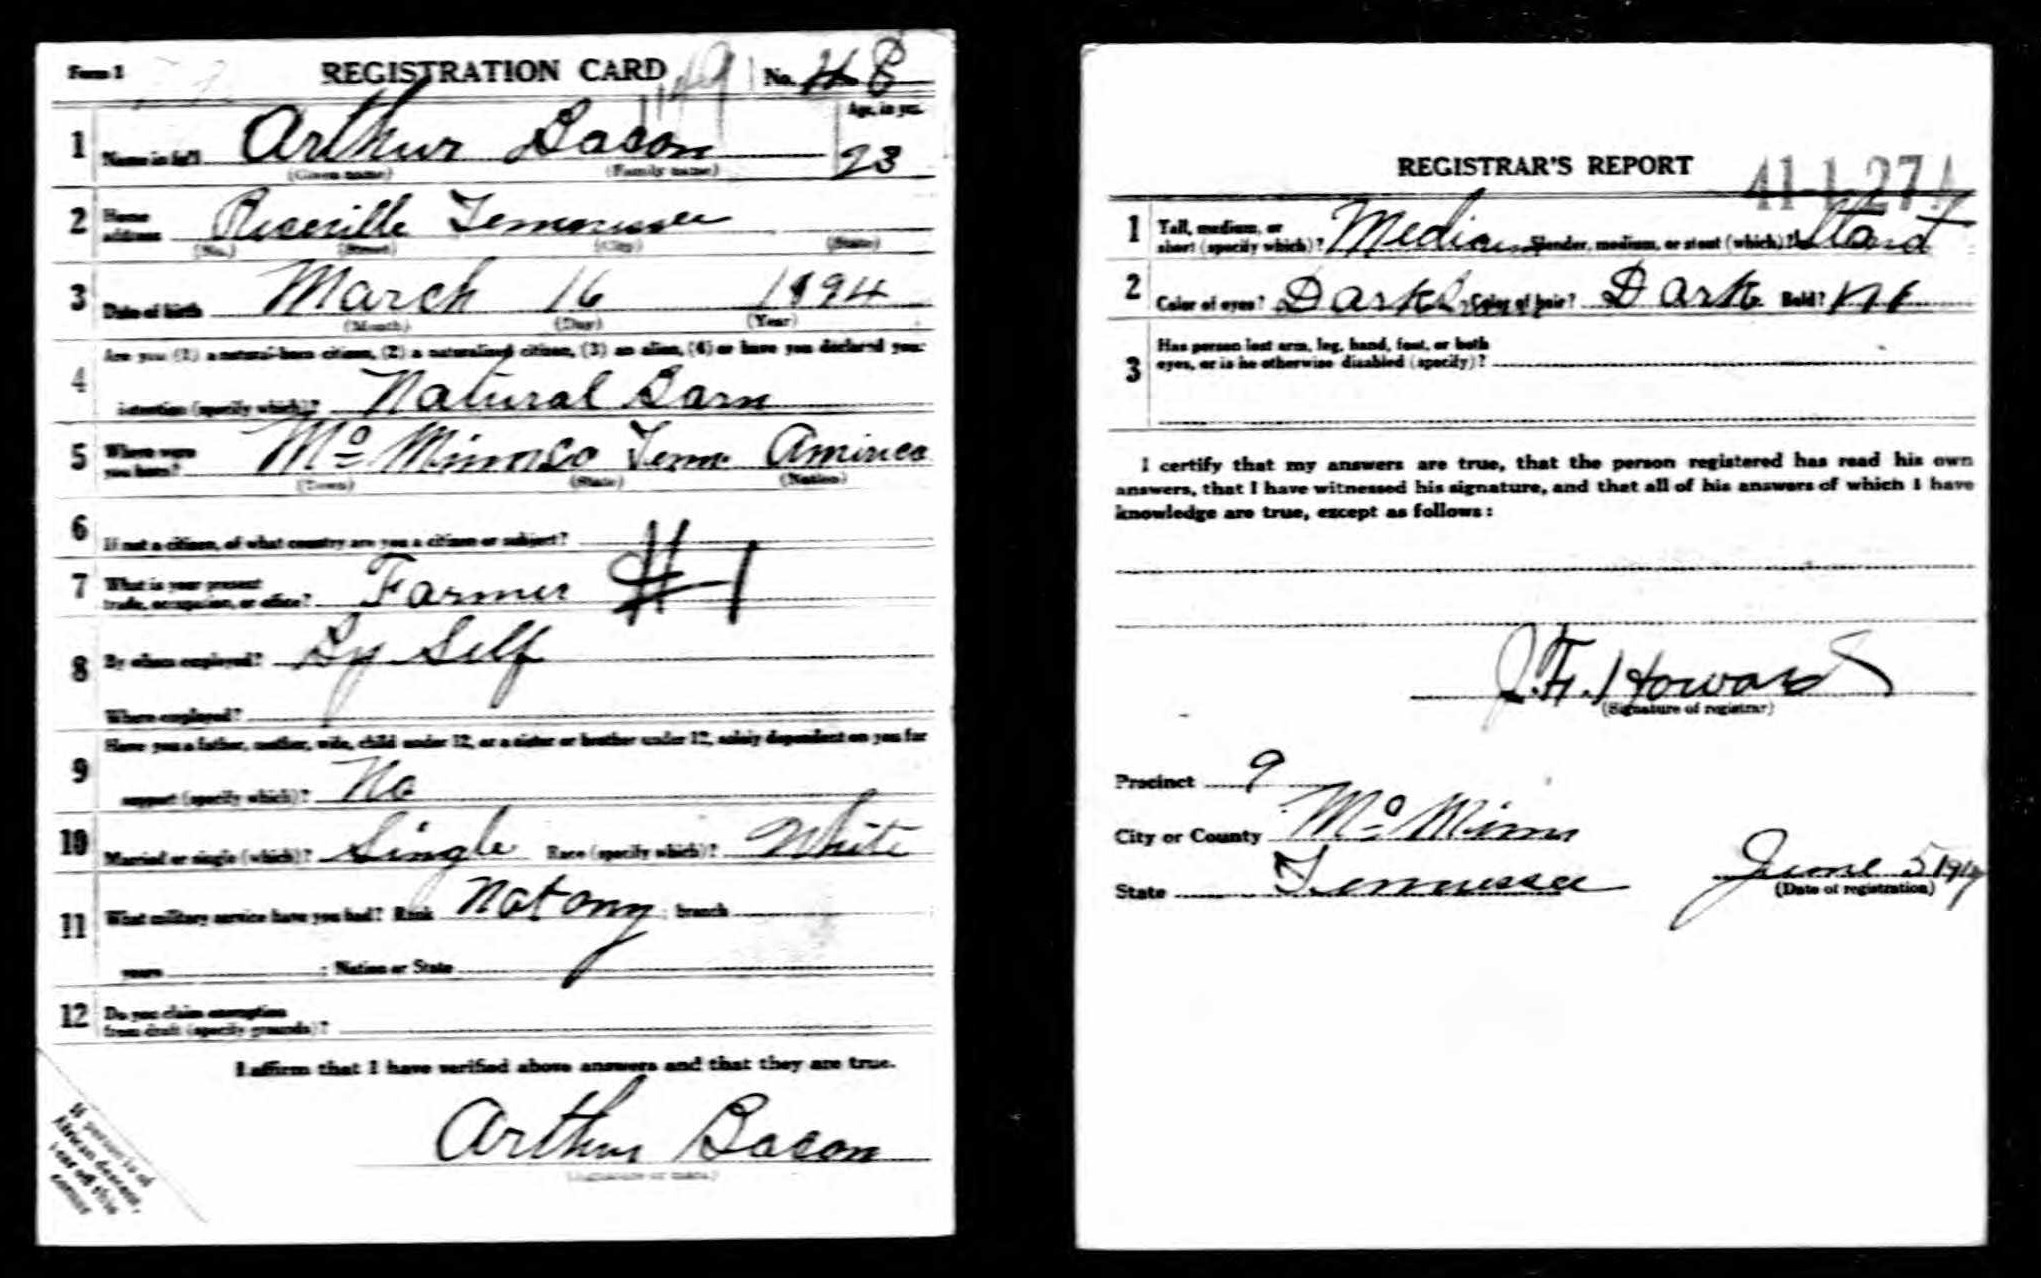 Form 1 REGISTRATION CARD 149 No. 48
Age, in yrs.
1 Name in full Arthur Bacon 23
(Given name) (Family name)
2 Home address Riceville Tennessee
(No.) (Street) (City) (State)
3 Date of birth March 16 1894
(Month) (Day) (Year)
Are you (1) a natural-born citizen, (2) a naturalized citizen, (3) an alien, (4) or have you declared your
4 intention (specify which)? Natural Born
5 Where were you born? Mc Minn Co Tenn. America
(Town) (State) (Nation)
6 If not a citizen, of what country are you a citizen or subject?
7 What is your present trade, occupation, or office? Farmer #1
8 By whom employed? By Self
Where employed?
Have you a father, mother, wife, child under 12, or a sister or brother under 12, solely dependent on you for
9 support (specify which)? No
10 Married or single (which)? Single Race (specify which)? White
11 What military service have you had? Rank Not any ; branch
years ; Nation or State
12 Do you claim exemption from draft (specify grounds)?
I affirm that I have verified above answers and that they are true.
Arthur Bacon
(Signature or mark)
If person is of
African descent,
tear off this
corner
REGISTRAR'S REPORT 41-1-27 A
1 Tall, medium, or short (specify which)? Medium Slender, medium, or stout (which)? Stout
2 Color of eyes? Dark Color of hair? Dark Bald? No
3 Has person lost arm, leg, hand, foot, or both
eyes, or is he otherwise disabled (specify)?
I certify that my answers are true, that the person registered has read his own
answers, that I have witnessed his signature, and that all of his answers of which I have
knowledge are true, except as follows:
J. F. Howard
(Signature of registrar)
Precinct 9
City or County Mc Minn
State Tennessee June 5 1917
(Date of registration)